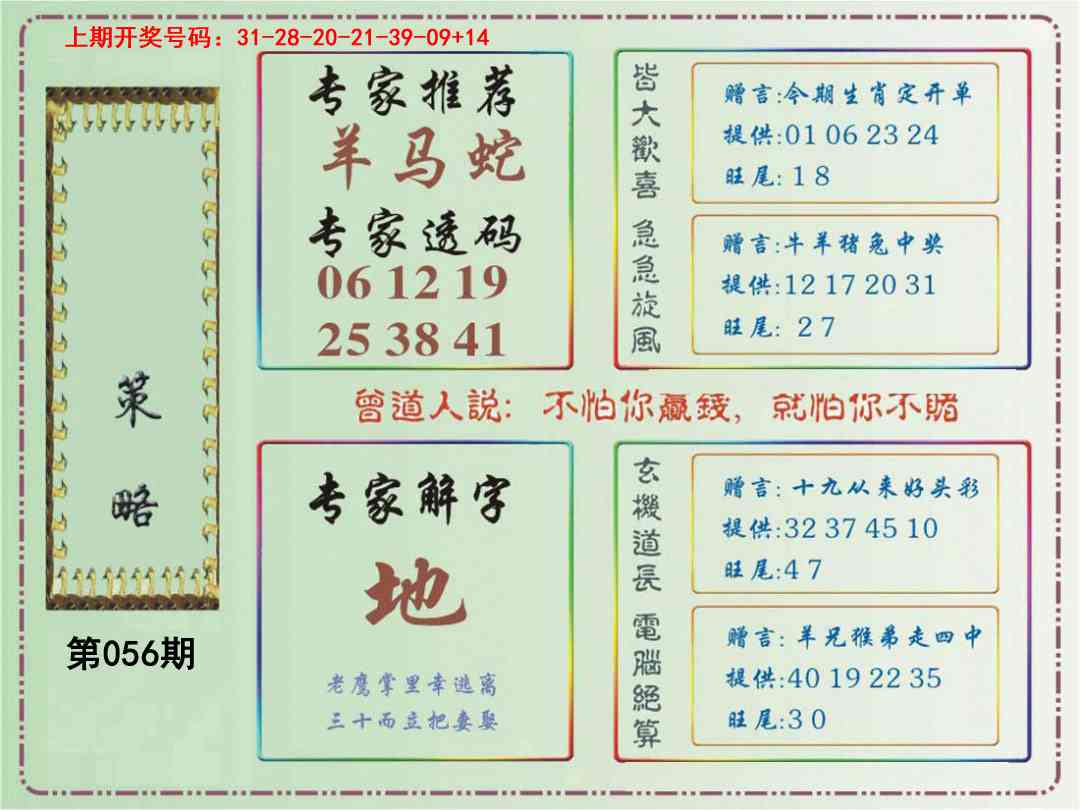 上期开奖号码：31-28-20-21-39-09+14
策略
第056期
专家推荐
羊马蛇
专家透码
06 12 19
25 38 41
皆大歡喜
赠言:今期生肖定开单
提供:01 06 23 24
旺尾: 1 8
急急旋風
赠言:牛羊猪兔中奖
提供:12 17 20 31
旺尾: 2 7
曾道人説: 不怕你赢錢, 就怕你不賭
专家解字
地
老鹰掌里幸逃离
三十而立把妻娶
玄機道長
赠言: 十九从来好头彩
提供:32 37 45 10
旺尾:4 7
電腦絕算
赠言: 羊兄猴弟走四中
提供:40 19 22 35
旺尾:3 0